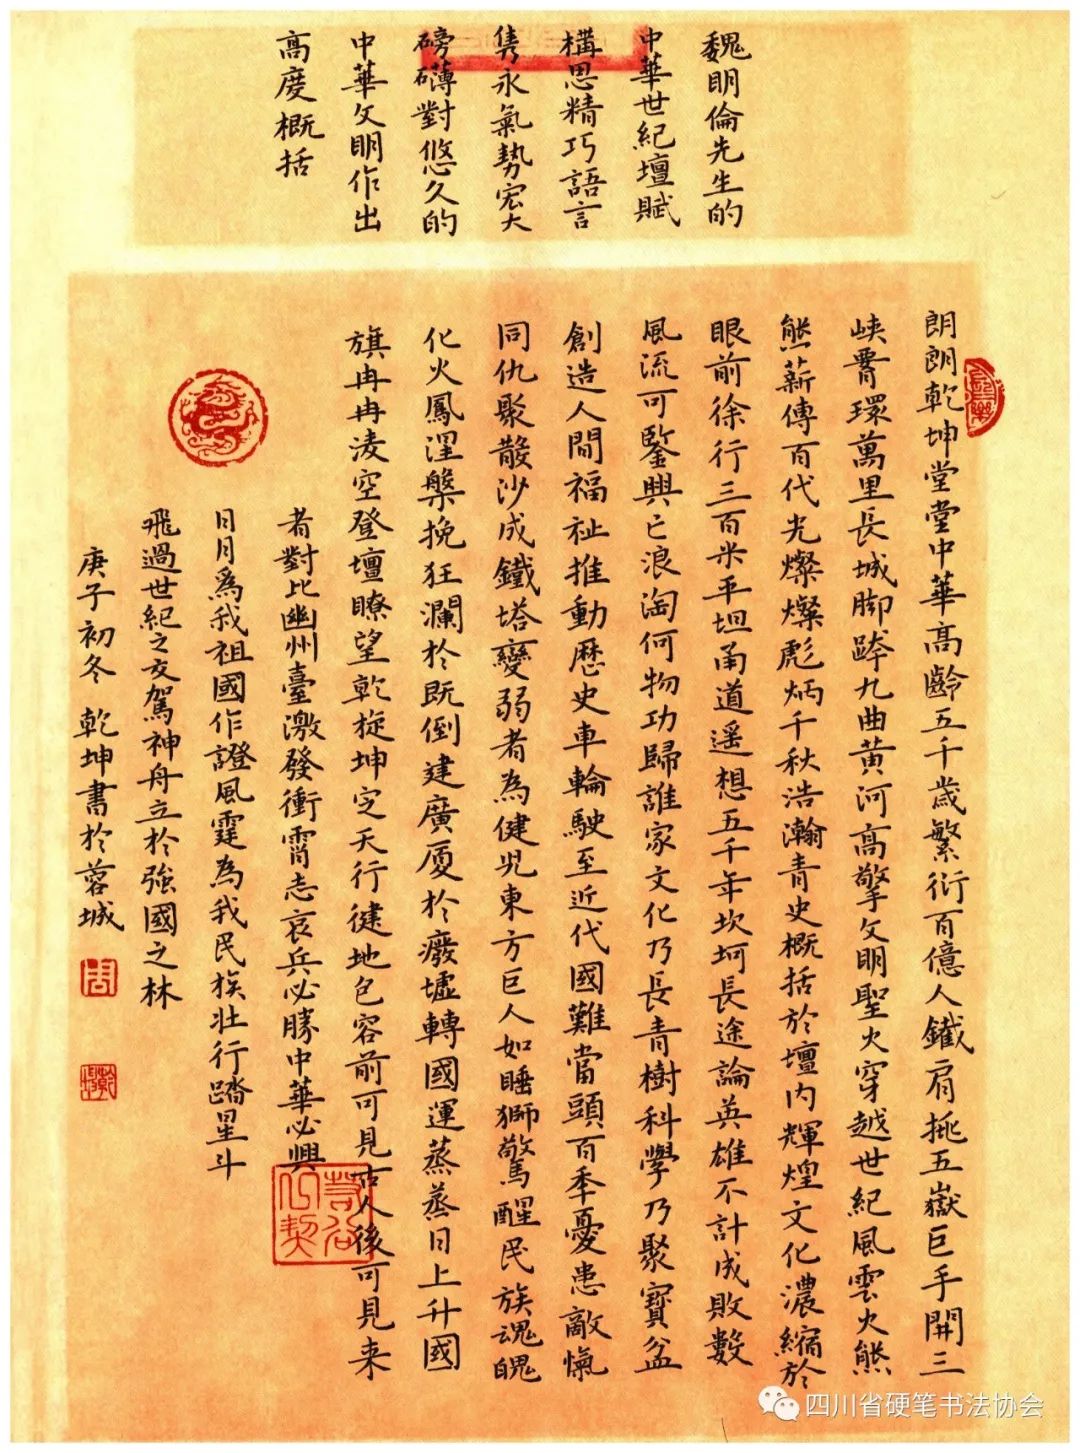 魏明倫先生的
中華世紀壇賦
構思精巧語言
雋永氣勢宏大
磅礴對悠久的
中華文明作出
高度概括
朗朗乾坤堂堂中華高齡五千歲繁衍百億人鐵肩挑五嶽巨手開三
峡脊環萬里長城脚跨九曲黄河高擎文明聖火穿越世紀風雲火熊
熊薪傳百代光燦燦彪炳千秋浩瀚青史概括於壇内輝煌文化濃縮於
眼前徐行三百米平坦甬道遥想五千年坎坷長途論英雄不計成敗數
風流可鑒興亡浪淘何物功歸誰家文化乃長青樹科學乃聚寳盆
創造人間福祉推動歷史車輪駛至近代國難當頭百年憂患敵愾
同仇聚散沙成鐵塔變弱者為健児東方巨人如睡獅驚醒民族魂魄
化火鳳涅槃挽狂瀾於既倒建廣厦於廢墟轉國運蒸蒸日上升國
旗冉冉凌空登壇瞭望乾旋坤定天行健地包容前可見古人後可見来
者對比幽州臺激發衝霄志哀兵必勝中華必興
日月爲我祖國作證風霆為我民族壯行踏星斗
飛過世紀之交駕神舟立於強國之林
庚子初冬 乾坤書於蓉城
四川省硬笔书法协会